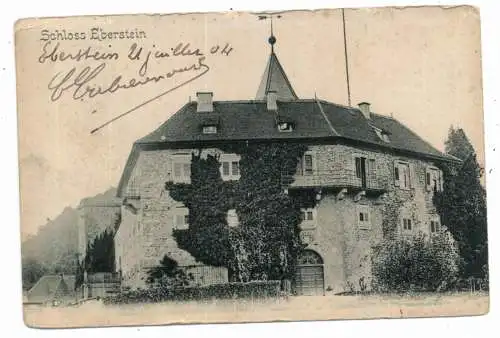 Schloss Eberstein
Eberstein 21 juillet 04